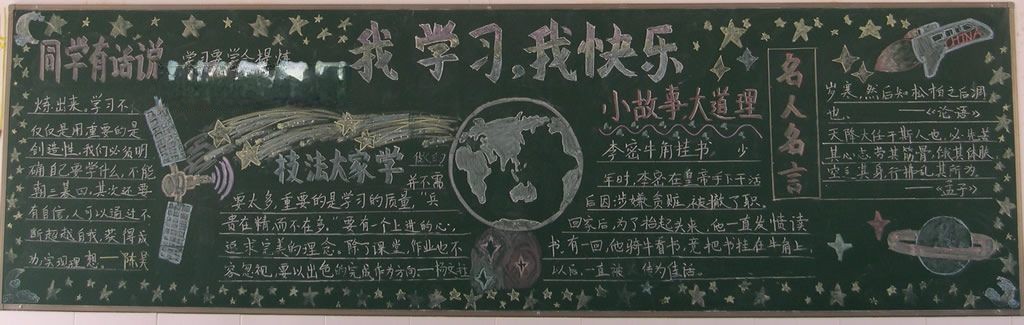 我学习、我快乐
同学有话说
学习要学会提炼
炼出来,学习不
仅仅是用重要的是
创造性,我们必须明
确自己要学什么,不能
朝三暮四,其次还要
有自信,人可以通过不
断超越自我,获得成
功,实现理想。——陈昊
技法大家学
我们
并不需
要太多,重要的是学习的质量,"兵
贵在精,而不在多。"要有个上进的心,
追求完美的理念。除了课堂,作业也不
容忽视,要以出色的完成作为方向——杨
小故事大道理
李密牛角挂书,少
年时,李密在皇帝手下干活
后因涉嫌责贬,被撤了职。
回家后,为了抬起头来,他一直发愤读
书,有一回,他将牛看书,竟把书挂在牛角上,
以后,一直被传为佳话。
名人名言
岁寒,然后知松柏之后凋
也。——《论语》
天降大任于斯人也,必先苦
其心志,劳其筋骨,饿其体肤,
空乏其身,行拂乱其所为。
——《孟子》
CHINA